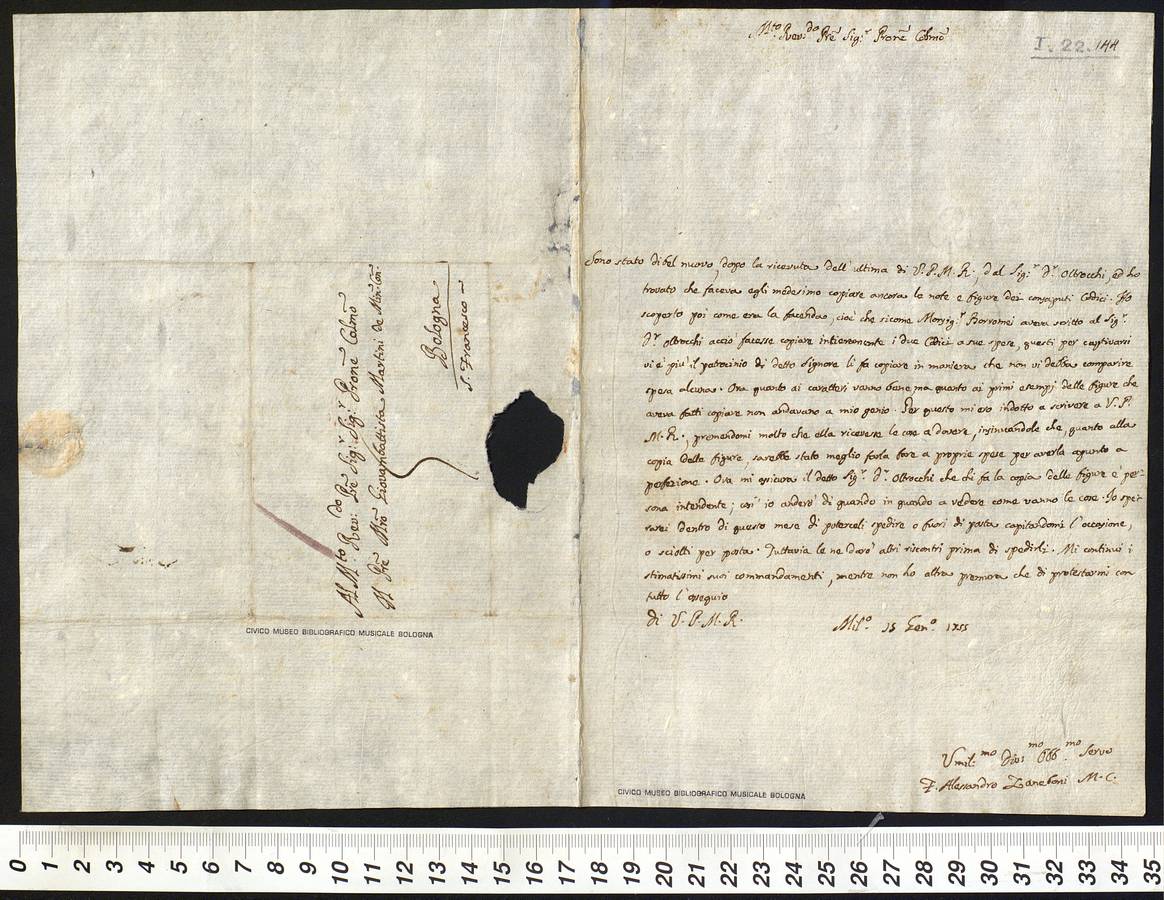 Al M.to Rev:do Prē Sig.r Sig.r Pronē Colmō
Il Prē Mrō Giovambattista Martini de Min: Con:
Bologna
S. Francesco
CIVICO MUSEO BIBLIOGRAFICO MUSICALE BOLOGNA
M.to Rev:do Prē Sig.r Pronē Colmō
I. 22. 144
Sono stato di bel nuovo, dopo la ricevuta dell'ultima di V.P.M.R., dal Sig.r D.r Oltrocchi, ed ho
trovato che faceva egli medesimo copiare ancora le note e figure dei consaputi Codici. Ho
scoperto poi come era la facenda, cioè che sicome Monsig.r Borromei aveva scritto al Sig.r
D.r Oltrocchi acciò facesse copiare intieramente i due Codici a sue spese, questi per captivarsi
vi è più il patrocinio di detto Signore li fa copiare in maniera che non vi debba comparire
spesa alcuna. Ora quanto ai caratteri vanno bene, ma quanto ai primi esempj delle figure che
aveva fatti copiare non andavano a mio genio. Per questo mi ero indotto a scrivere a V.P.
M.R., premendomi molto che ella ricevesse le cose a dovere, insinuandole che, quanto alla
copia delle figure, sarebbe stato meglio farla fare a proprie spese per averla apunto a
perfezione. Ora mi assicura il detto Sig.r D.r Oltrocchi che chi fa la copia delle figure è per-
sona intendente; così io anderò di quando in quando a vedere come vanno le cose. Io spe-
rarei dentro di questo mese di poterceli spedire o fuori di posta capitandomi l'occasione,
o sciolti per posta. Tuttavia le ne darò altri riscontri prima di spedirli. Mi continui i
stimatissimi suoi commandamenti, mentre non ho altra premura che di protestarmi con
tutto l'ossequio
di V.P.M.R.
Mil.o 15 Gen.o 1755
Umil.mo Div.mo Obb.mo Servo
F. Alessandro Zaneboni M.C.
CIVICO MUSEO BIBLIOGRAFICO MUSICALE BOLOGNA
0 1 2 3 4 5 6 7 8 9 10 11 12 13 14 15 16 17 18 19 20 21 22 23 24 25 26 27 28 29 30 31 32 33 34 35